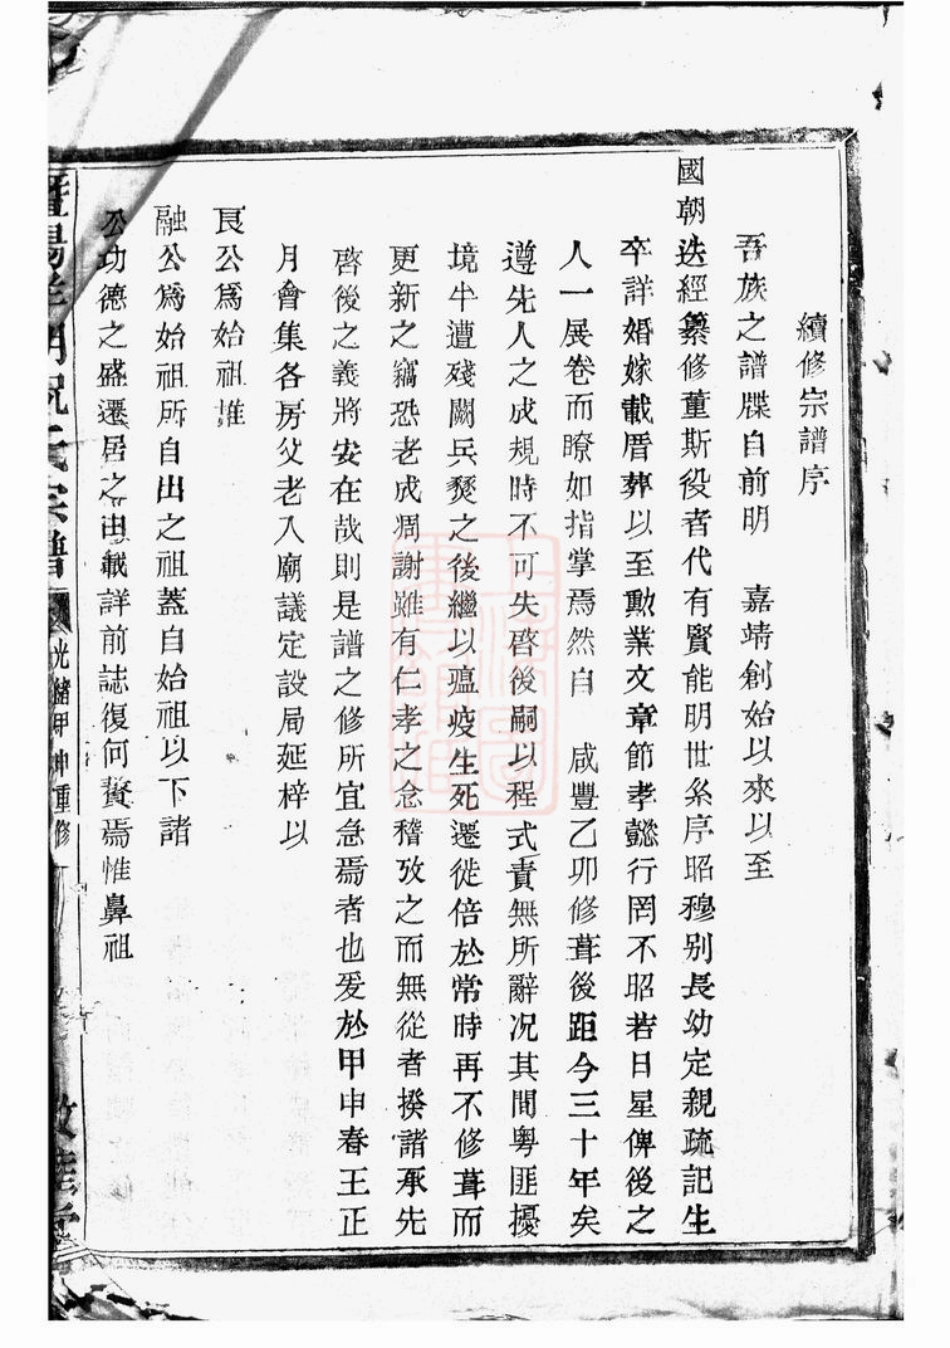 續修宗譜序
吾族之譜牒自前明 嘉靖創始以來以至
國朝迭經纂修董斯役者代有賢能明世系序昭穆别長幼定親疏記生
卒詳婚嫁載厝葬以至勳業文章節孝懿行罔不昭若日星俾後之
人一展卷而瞭如指掌焉然自 咸豐乙卯修葺後距今三十年矣
遵先人之成規時不可失啓後嗣以程式責無所辭况其間粤匪擾
境牛遭殘闕兵燹之後繼以瘟疫生死遷徙倍於常時再不修葺而
更新之竊恐老成凋謝雖有仁孝之念稽攷之而無從者揆諸承先
啓後之義將安在哉則是譜之修所宜急焉者也爰於甲申春王正
月會集各房父老入廟議定設局延梓以
良公爲始祖惟
融公爲始祖所自出之祖蓋自始祖以下諸
公功德之盛遷居之由載詳前誌復何贅焉惟鼻祖
氏宗譜 光緒甲申重修 敦睦堂